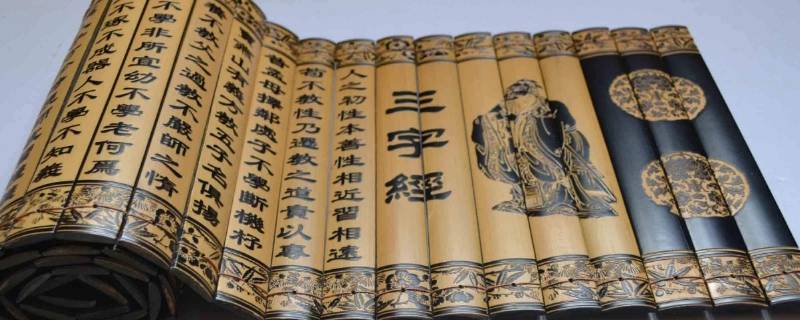 三字經
人之初性本善性相近習相遠
苟不教性乃遷教之道貴以專
昔孟母擇鄰處子不學斷機杼
竇燕山有義方教五子名俱揚
養不教父之過教不嚴師之惰
不學非所宜幼不學老何爲
不琢不成器人不學不知義